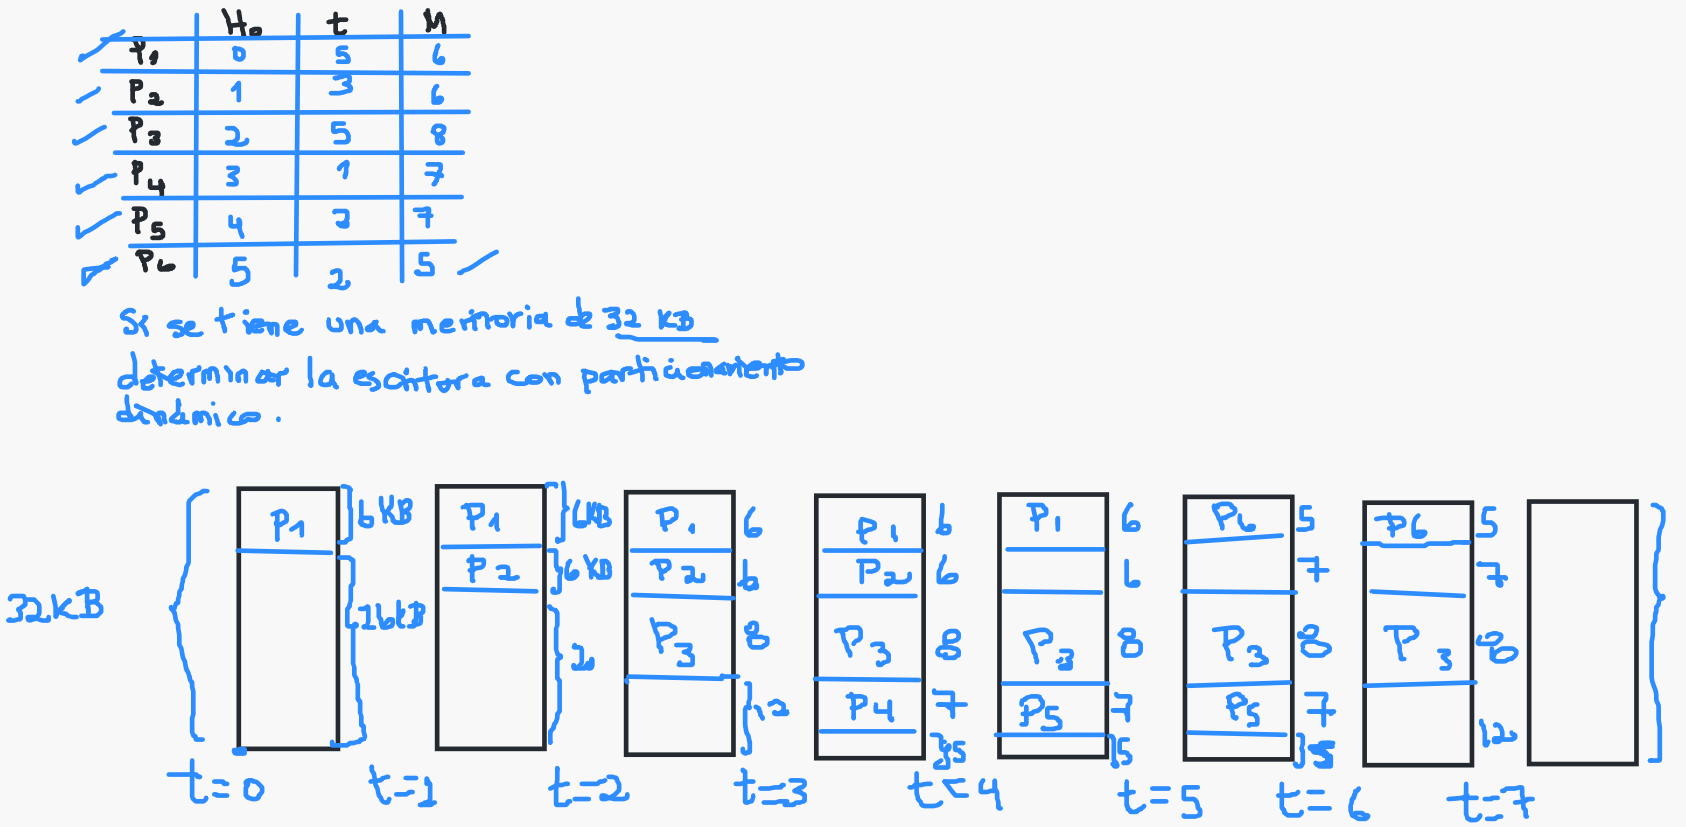 Ho t M
P1 0 5 6
P2 1 3 6
P3 2 5 8
P4 3 1 7
P5 4 2 7
P6 5 2 5
Si se tiene una memoria de 32 KB
determinar la escritura con particionamiento
dinámico.
32KB
P1 6KB
26KB
P1 6KB
P2 6KB
P1 6
P2 6
P3 8
12
P1 6
P2 6
P3 8
P4 7
5
P1 6
6
P3 8
P5 7
5
P6 5
7
P3 8
P5 7
5
P6 5
7
P3 8
12
t=0 t=1 t=2 t=3 t=4 t=5 t=6 t=7